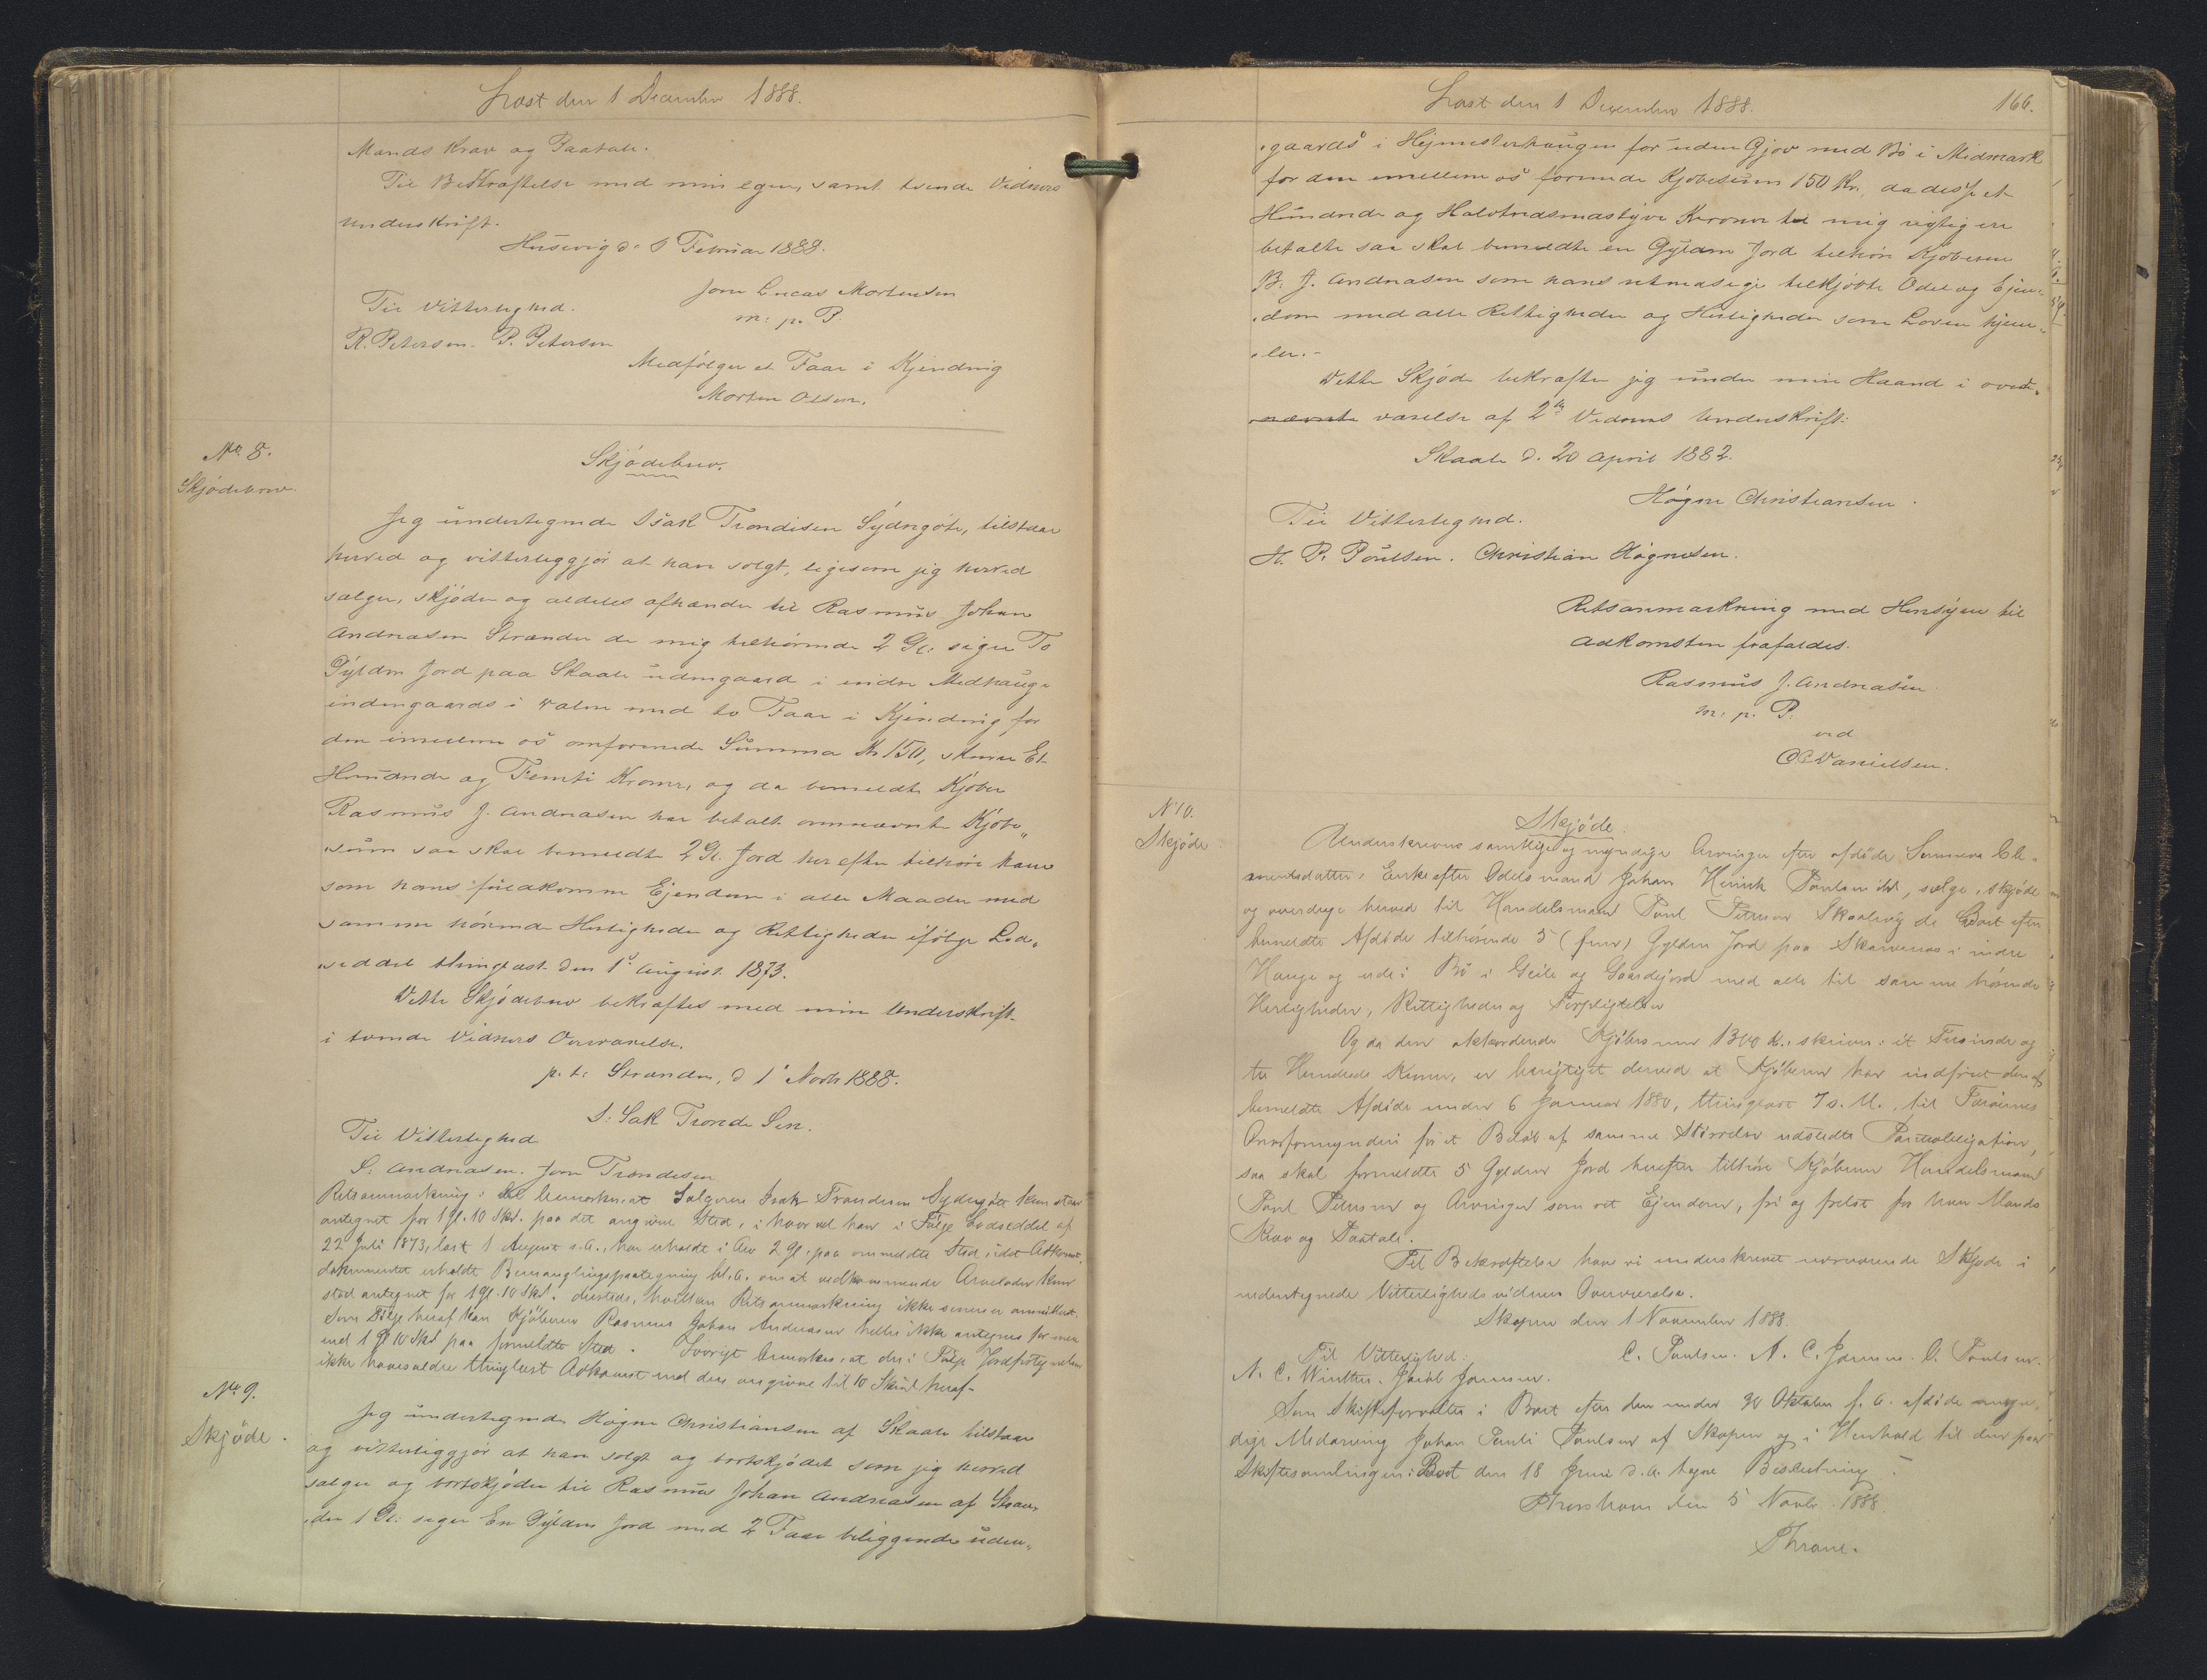 Læst den 1 December 1888.
Mands Krav og Paatale.
Til Bekræftelse med min egen, samt tvende Vidners
Underskrift.
Husevig d. 6 Februar 1888.
Jone Lucas Mortensen
m: p. P.
Til Vitterlighed.
R. Petersen. P. Petersen
Medfølger et Faar i Kjendning
Morten Olsen.
No 8.
Skjødebrev.
Skjødebrev.
Jeg undertegnede Isak Trondesen Sydregøte, tilstaar
herved og vitterliggjør at have solgt, ligesom jeg herved
sælger, skjøder og aldeles afhænder til Rasmus Johan
Andreasen Strænder de mig tilhørende 2 Gl: siger To
Gylden Jord paa Skaale udengaard i inder Midhauge
indengaards i Valen med to Faar i Kjendnig for
den imellem os omforenede Summa Kr 150, skriver Et
Hundrede og Femti Kroner, og da bemeldte Kjøber
Rasmus J. Andreasen har betalt omnævnte Kjøbe„
„sum saa skal bemeldte 2 Gl. Jord her efter tilhøre ham
som hans fuldkomne Ejendom i alle Maader med
samme hørende Herligheder og Rettigheder ifølge Lod„
„seddel thinglæst den 1ste August 1873.
Dette Skjødebrev bekræftes med min Underskrift
i tvende Vidners Overværelse.
p. t. Strænder, d 1ste Novb 1888.
I: Sak Tronde Sen.
Til Vitterlighed
S. Andreasen. Jone Trondesen
Retsanmærkning: Det bemærkes, at Sælgeren Isak Trondesen Sydregøte kun staar
antegnet for 1 gl. 10 Skd. paa det angivne Sted, i hvorvel han i Følge Lodseddel af
22 Juli 1873, læst 1 August s. A., har erholdt i Arv 2 gl. paa ommeldte Sted, idet Adkomst„
dokumentet erholdt Bemanglingspaategning bl. a. om at vedkommende Arvelader kun
stod antegnet for 1 gl. 10 Skd. dersteds, hvilken Retsanmærkning ikke senere er annulleret.
Som Følge heraf kan Kjøberen Rasmus Johan Andreasen heller ikke antegnes for mere
end 1 gl 10 Skd paa formeldte Sted. Iøvrigt bemærkes, at der i Følge Jordfortegnelsen
ikke haves ældre thinglæst Adkomst end den angivne til 10 Skind heraf.
No 9.
Skjøde.
Jeg undertegnede Høgne Christiansen af Skaale tilstaar
og vitterliggjør at have solgt og bortskjødet som jeg herved
sælger og bortskjøder til Rasmus Johan Andreasen af Stræn„
„der 1 Gl: siger En Gylden Jord med 2 Faar beliggende uden„
Læst den 1 December 1888.
166.
„gaards i Hejmesterhaugen for uden Gjov med Bø i Midmark
for den imellem os forenede Kjøbesum 150 Kr, da disse et
Hundrede og Halvtredsindstyve Kroner til mig rigtig ere
betalte saa skal bemeldte en Gylden Jord tilhøre Kjøberen
R. J. Andreasen som hans retmæsige tilkjøbte Odel og Ejen„
„dom med alle Rettigheder og Herligheder som Loven hjem„
„ler.-
Dette Skjøde bekræfter jeg under min Haand i over„
nævnte værelse af 2de Vidners Underskrift.
Skaale d. 20 April 1882.
Høgne Christiansen.
Til Vitterlighed.
H. P. Poulsen. Christian Høgnesen.
Retsanmærkning med Hensyn til
Adkomsten frafaldes.
Rasmus J. Andreasen
m: p. P.
ved
O. Danielsen.
N 10.
Skjøde.
Skjøde.
Underskrevne samtlige og myndige Arvinger efter afdøde Sunneva Cle„
mentsdatter, Enke efter Odelsmand Johan Henrik Poulsen ibd, sælge, skjøde
og overdrage herved til Handelsmand Poul Petersen Skaalevig de Boet efter
bemeldte Afdøde tilhørende 5 (fem) Gylden Jord paa Skarvenes i indre
Hauge og ude i Bø i Geile og Gaardejord med alle til samme hørende
Herligheder, Rettigheder og Forpligtelser
Og da den akkorderede Kjøbesum 1300 Kr. skriver: et Tusinde og
tre Hundrede Kroner, er berigtiget derved at Kjøberen har indfriet den af
bemeldte Afdøde under 6 Januar 1880, thinglæst 7 s. M., til Færøernes
Overformynderi for et Beløb af samme Størrelse udstedte Panteobligation,
saa skal formeldte 5 Gylden Jord herefter tilhøre Kjøberen Handelsmand
Poul Petersen og Arvinger som ret Ejendom, fri og frelst for hver Mands
Krav og Paatale.
Til Bekræftelse have vi underskrevet nærværende Skjøde i
undertegnede Vitterligheds vidners Overværelse.
Skopen den 1 November 1888.
C. Poulsen. A. C. Jensen. O. Poulsen.
Til Vitterlighed:
N. C. Winther. Jacob Joensen.
Som Skifteforvalter i Boet efter den under 30 Oktober f. A. afdøde myn„
dige Medarving Johan Pauli Poulsen af Skopen og i Henhold til den paa
Skiftesamlingen i Boet den 18 Juni d. A. tagne Beslutning.
Thorshavn den 5 Novbr. 1888.
Thrane.